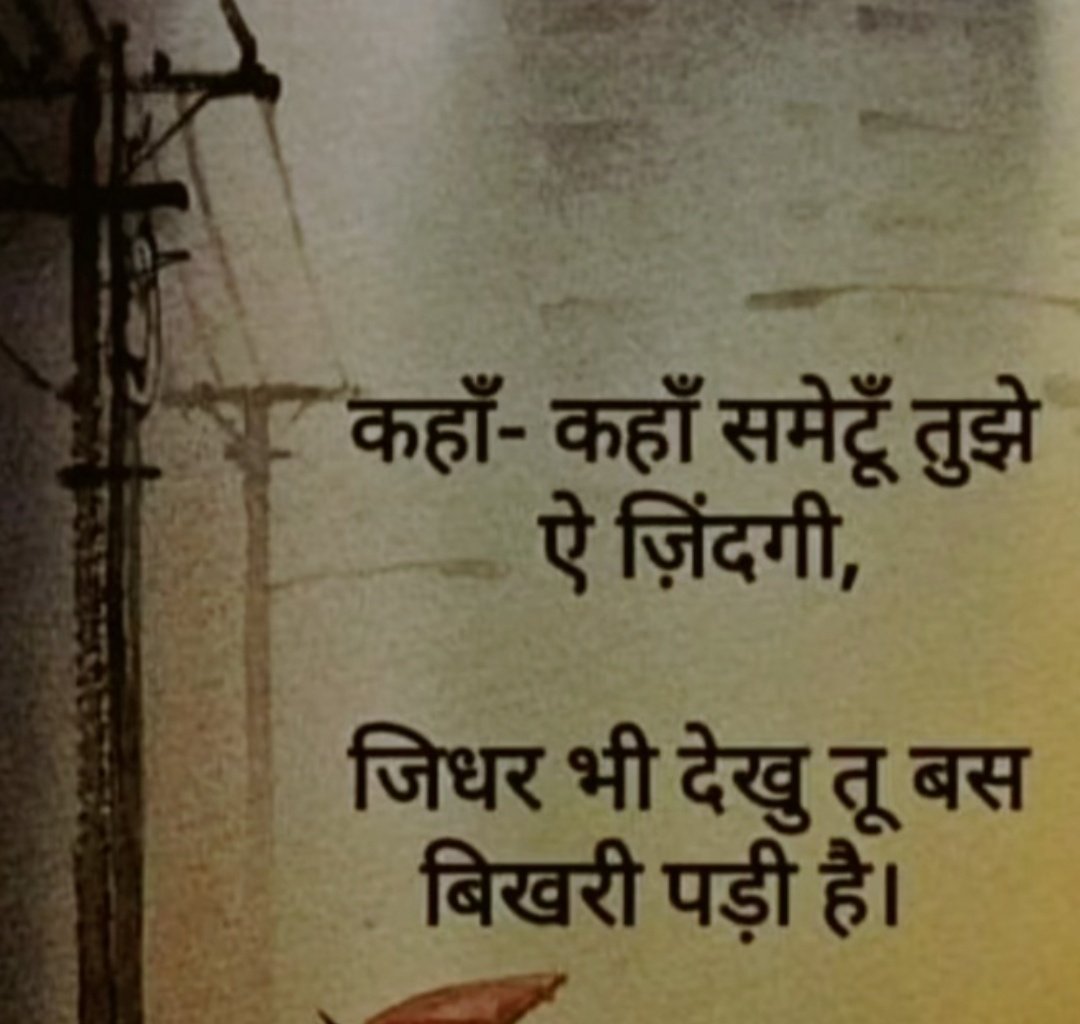 कहाँ- कहाँ समेटूँ तुझे
ऐ ज़िंदगी,
जिधर भी देखु तू बस
बिखरी पड़ी है।